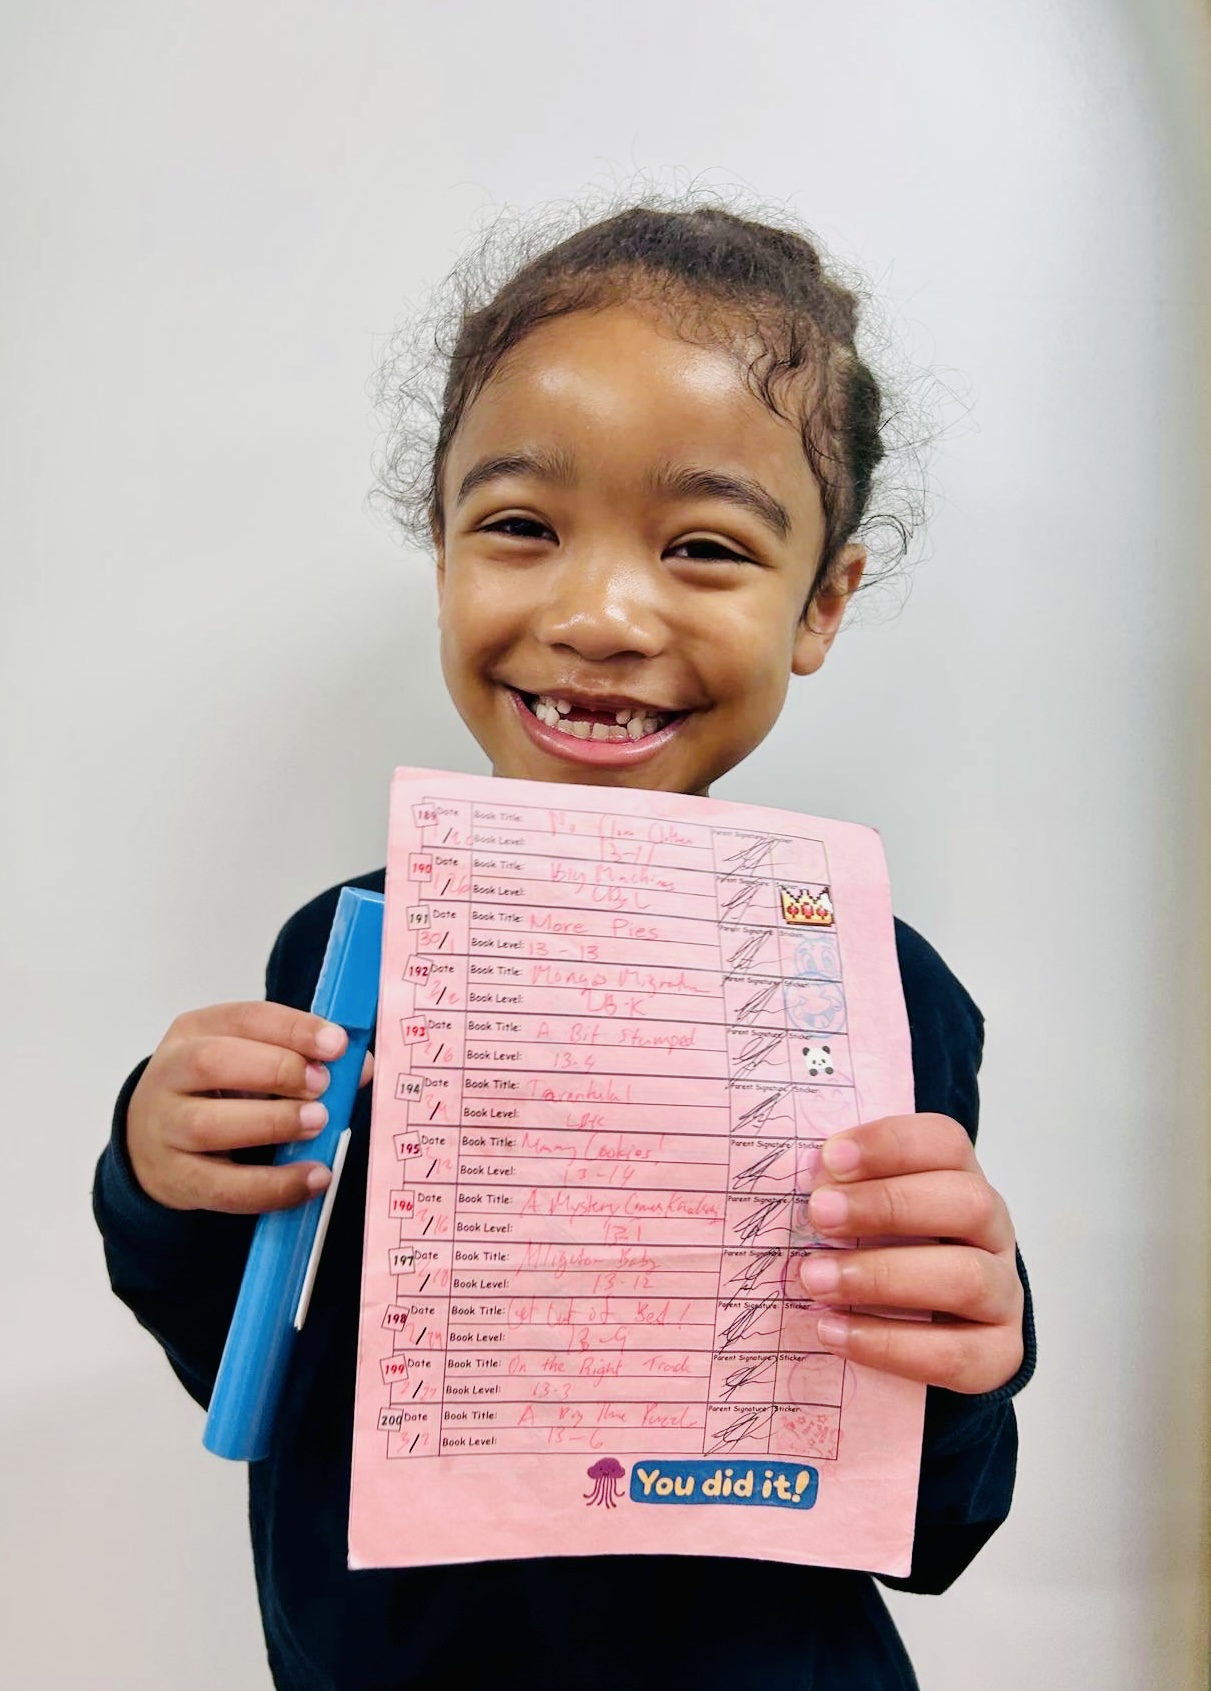 189 Date Book Title: Parent Signature: Sticker
Book Level: 13-11
190 Date Book Title: Big Machines Parent Signature:
1/26 Book Level:
191 Date Book Title: More Pies Parent Signature: Sticker:
30/1 Book Level: 13 - 13
192 Date Book Title: Parent Signature: Sticker:
2/2 Book Level: LB-K
193 Date Book Title: A Bit Stumped Parent Signature: Sticker
2/6 Book Level: 13-4
194 Date Book Title: Tarantula! Parent Signature: Sticker:
2/9 Book Level:
195 Date Book Title: Mmmm Cookies! Parent Signature: Sticker
2/12 Book Level: 13-14
196 Date Book Title: A Mystery Comes Knocking Parent Signature:
2/16 Book Level:
197 Date Book Title: Alligator Baby Parent Signature: Sticker
Book Level: 13-12
198 Date Book Title: Get Out of Bed! Parent Signature: Sticker:
2/24 Book Level: 13-9
199 Date Book Title: On the Right Track Parent Signature: Sticker:
2/27 Book Level: 13-3
200 Date Book Title: A Big Time Puzzle Parent Signature: Sticker:
3/2 Book Level: 13-6
You did it!